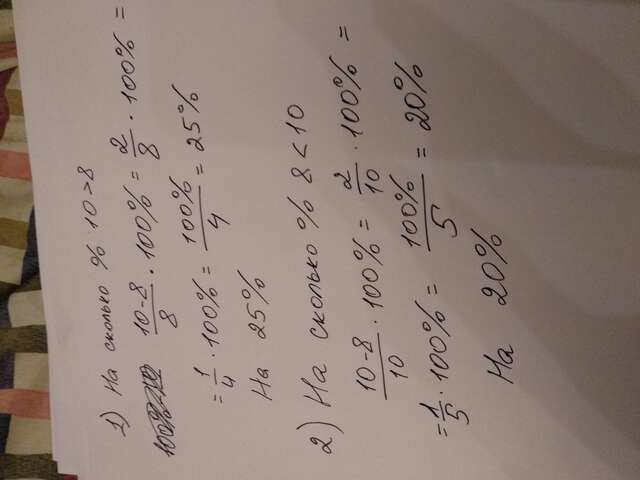 1) На сколько % 10>8
10-8/8 · 100% = 2/8 · 100% =
= 1/4 · 100% = 100%/4 = 25%
На 25%
2) На сколько % 8<10
10-8/10 · 100% = 2/10 · 100% =
= 1/5 · 100% = 100%/5 = 20%
На 20%